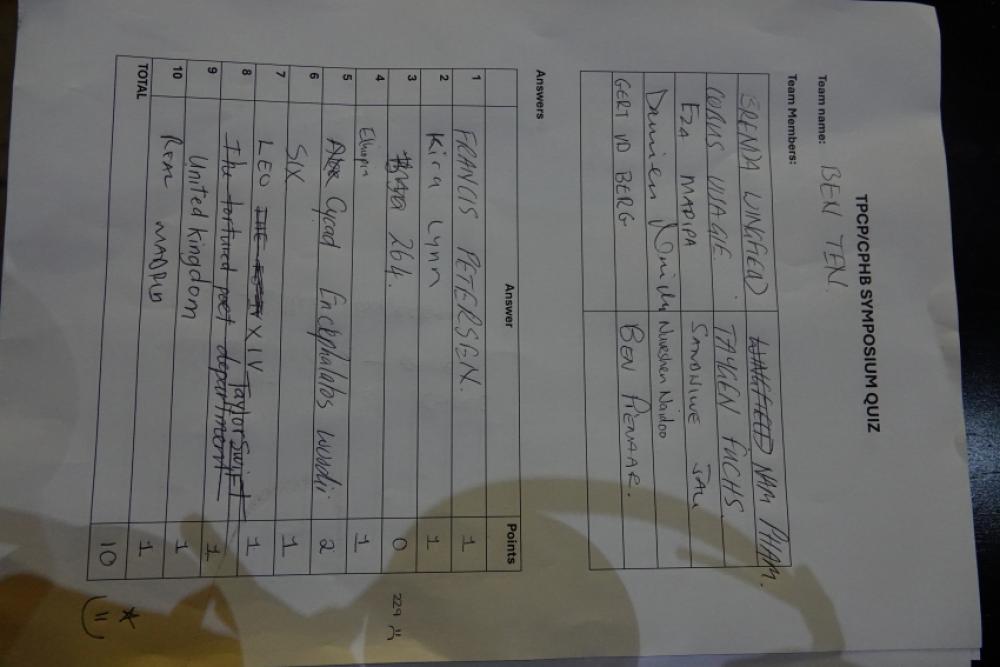 TPCP/CPHB SYMPOSIUM QUIZ
Team name: BEN TEN.
Team Members:
BRENDA WINGFIELD WINGFIELD NAM PHAM.
COBUS VISAGIE. TAYGEN FUCHS.
EZA MARIPA SANDNIWE JALI
Damien Naidu Nireshen Naidoo
GERT VD BERG BEN PIENAAR.
Answers
Answer Points
1 FRANCIS PETERSEN. 1
2 Kira Lynn 1
3 264. 0 229
4 Elhapn 1
5 Cycad Encephalatos woodii 2
6 SIX 1
7 LEO XIV 1
8 The tortured poet department Taylor Swift 1
9 United kingdom 1
10 REAL MADRID 1
TOTAL 10